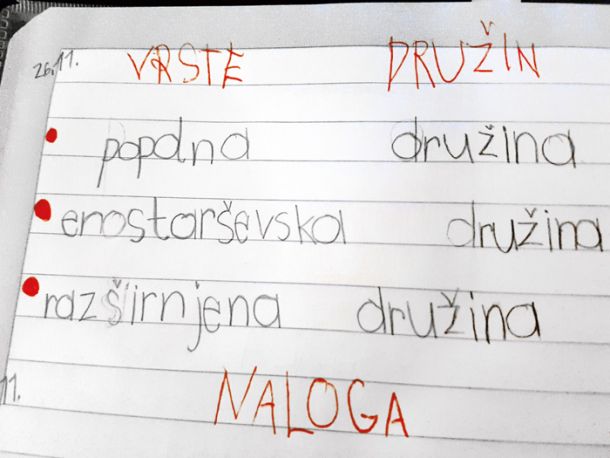 26.11. VRSTE DRUŽIN
popdna družina
enostarševska družina
razširnjena družina
11. NALOGA